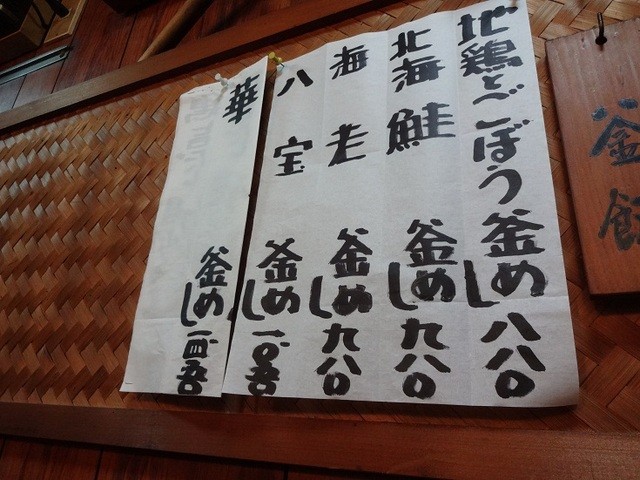 釜
地鶏とごぼう釜めし 八八〇
北海鮭釜めし 九八〇
海老釜めし 九八〇
八宝釜めし 一〇五〇
華釜めし